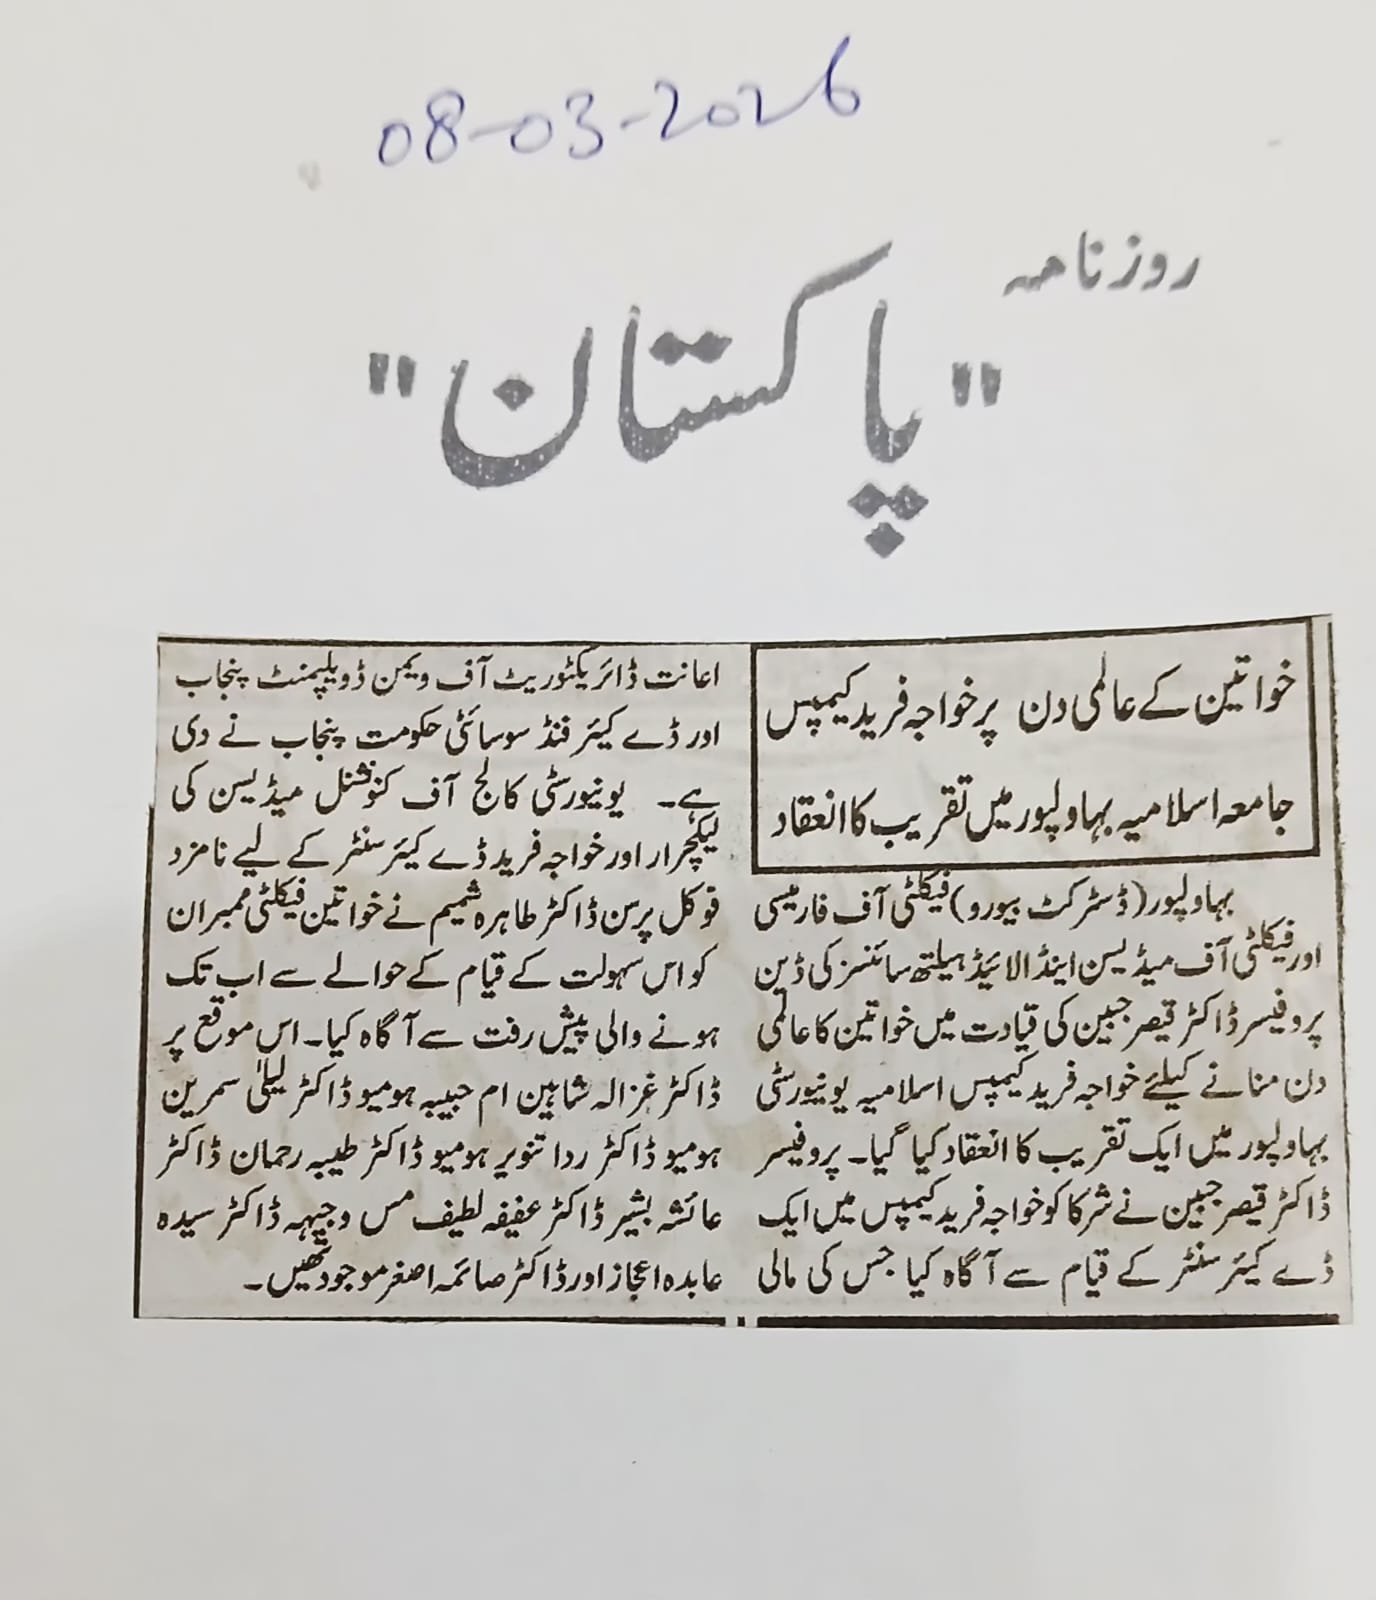 08-03-2026
روزنامہ
"پاکستان"
خواتین کے عالمی دن پر خواجہ فرید کیمپس
جامعہ اسلامیہ بہاولپور میں تقریب کا انعقاد
بہاولپور (ڈسٹرکٹ بیورو) فیکلٹی آف فارمیسی
اور فیکلٹی آف میڈیسن اینڈ الائیڈ ہیلتھ سائنسز کی ڈین
پروفیسر ڈاکٹر قیصر جبین کی قیادت میں خواتین کا عالمی
دن منانے کیلئے خواجہ فرید کیمپس اسلامیہ یونیورسٹی
بہاولپور میں ایک تقریب کا انعقاد کیا گیا۔ پروفیسر
ڈاکٹر قیصر جبین نے شرکا کو خواجہ فرید کیمپس میں ایک
ڈے کیئر سنٹر کے قیام سے آگاہ کیا جس کی مالی
اعانت ڈائریکٹوریٹ آف ویمن ڈویلپمنٹ پنجاب
اور ڈے کیئر فنڈ سوسائٹی حکومت پنجاب نے دی
ہے۔ یونیورسٹی کالج آف کنونشنل میڈیسن کی
لیکچرار اور خواجہ فرید ڈے کیئر سنٹر کے لیے نامزد
فوکل پرسن ڈاکٹر طاہرہ شمیم نے خواتین فیکلٹی ممبران
کو اس سہولت کے قیام کے حوالے سے اب تک
ہونے والی پیش رفت سے آگاہ کیا۔ اس موقع پر
ڈاکٹر غزالہ شاہین ام حبیبہ ہومیو ڈاکٹر لیلیٰ سمرین
ہومیو ڈاکٹر ردا تنویر ہومیو ڈاکٹر طیبہ رحمان ڈاکٹر
عائشہ بشیر ڈاکٹر عفیفہ لطیف مس وجیہہ ڈاکٹر سیدہ
عابدہ اعجاز اور ڈاکٹر صائمہ اصغر موجود تھیں۔